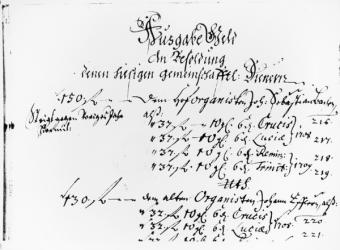 Ausgabe Geld
An Besoldung
denen hiesigen gemeinschafftl. Dienern
150 fl — dem Hoforganisten Joh. Sebastian Bachen
alß:
37 fl 10 gl. 6 ₰ Crucis 1708 216.
37 fl 10 gl. 6 ₰ Luciae 217.
37 fl 10 gl. 6 ₰ Remin: 1709 218.
37 fl 10 gl. 6 ₰ Trinit: 219.
Uts.
130 fl — dem alten Organisten Johann Efflern, alß:
32 fl 10 gl. 6 ₰ Crucis 1708 220
32 fl 10 gl. 6 ₰ Luciae 221.